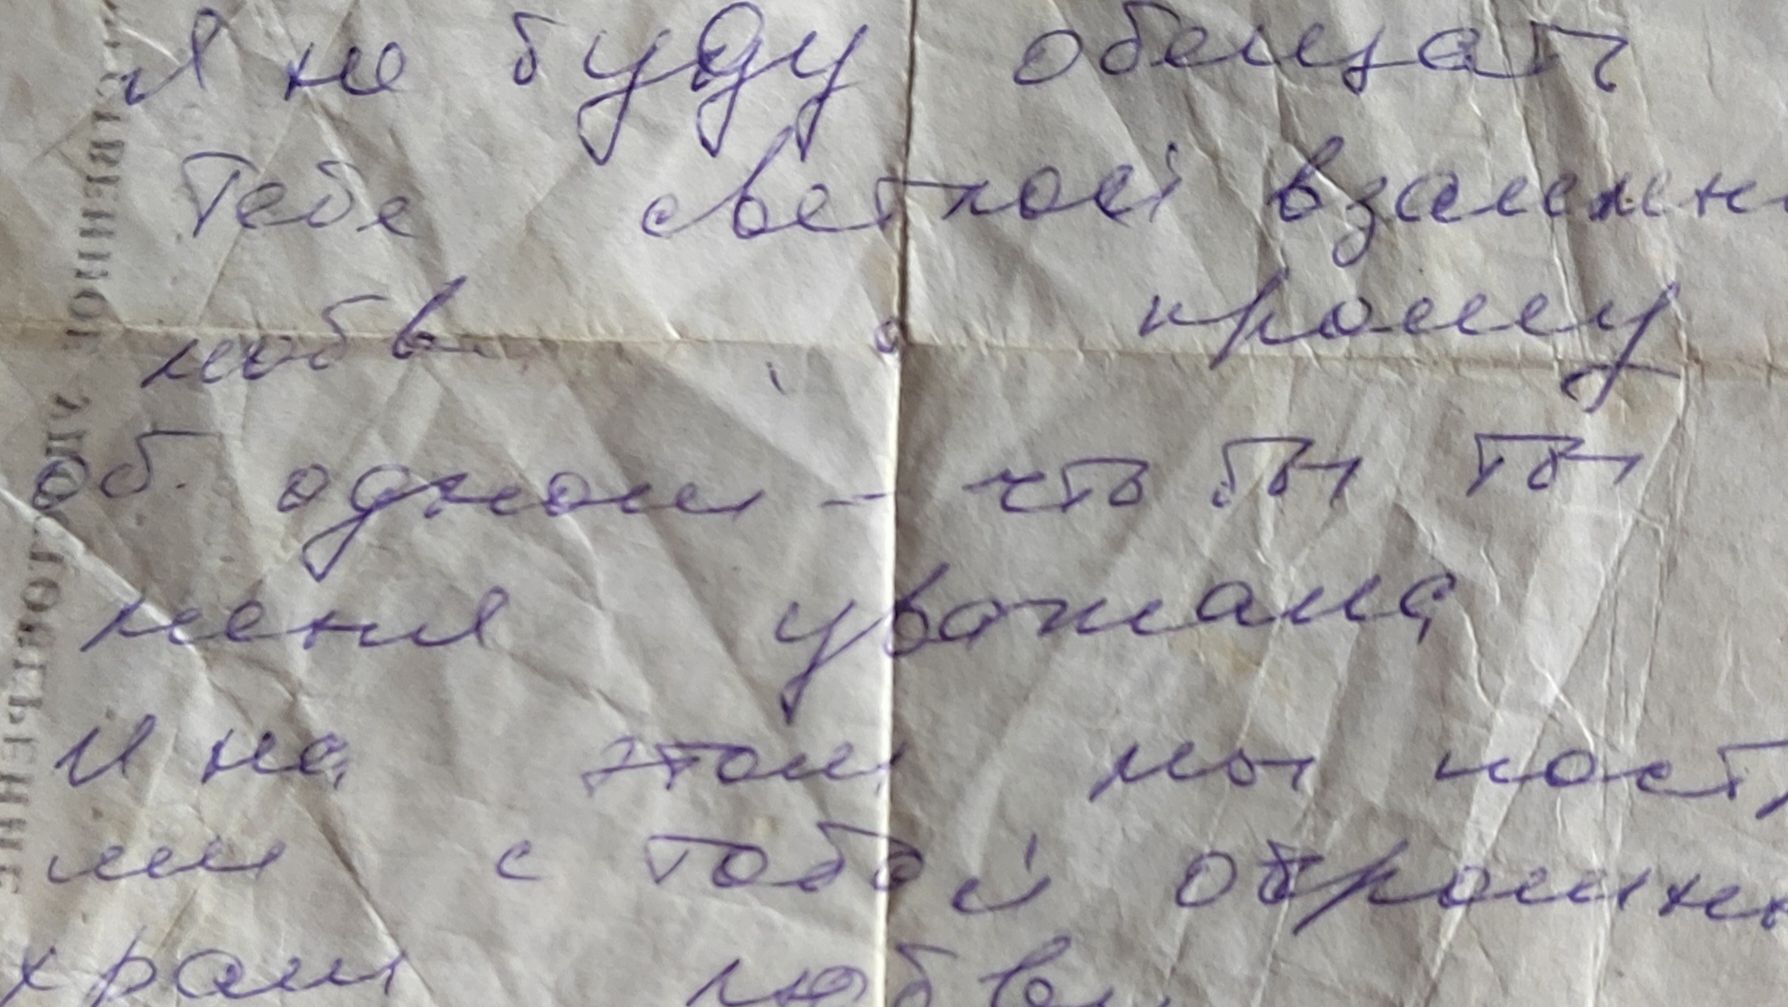 Я не буду обещать
тебе светлой взаимн
любви, а прошу
об одном - что бы ты
меня уважала
И на этом мы постр
им с тобой огромны
храм любви